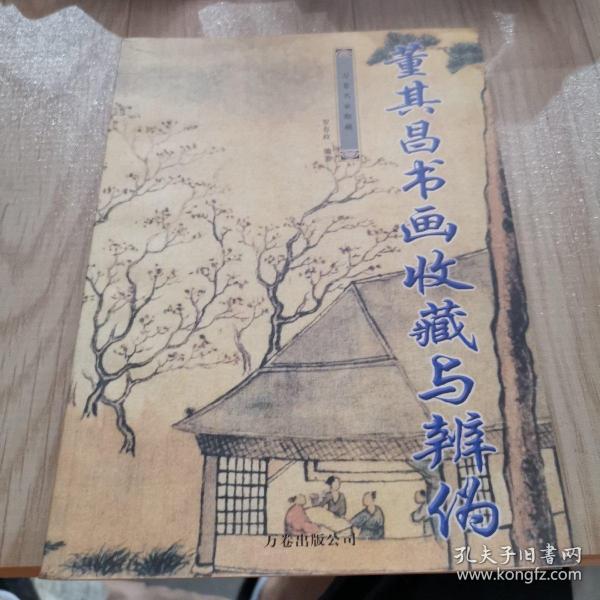 董其昌书画收藏与辨伪
编著
万卷出版公司
孔夫子旧书网
www.kongfz.com